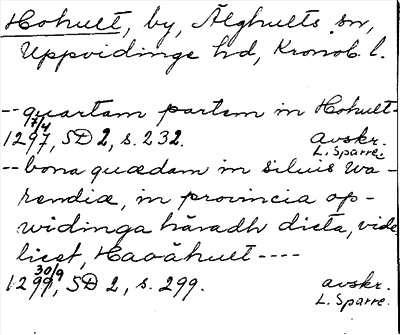 Hohult, by, Älghults sn,
Uppvidinge hd, Kronob. l.
-- quartam partem in Hohult-
17/4
1297, SD 2, s. 232. avskr.
L. Sparre.
-- bona quædam in siluis wa-
rendiæ, in provincia op-
widinga häradh dicta, vide
licet, Haoåhult ----
30/9
1299, SD 2, s. 299. avskr.
L. Sparre.